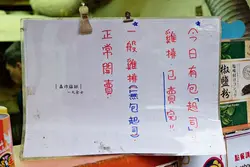 今日有包「起司」
雞排已賣完!!
一般雞排(無包起司)
正常開賣
椒鹽粉